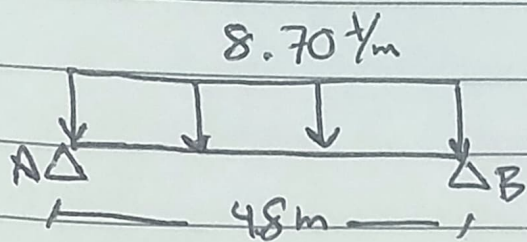 8.70 t/m
A B
4.8 m